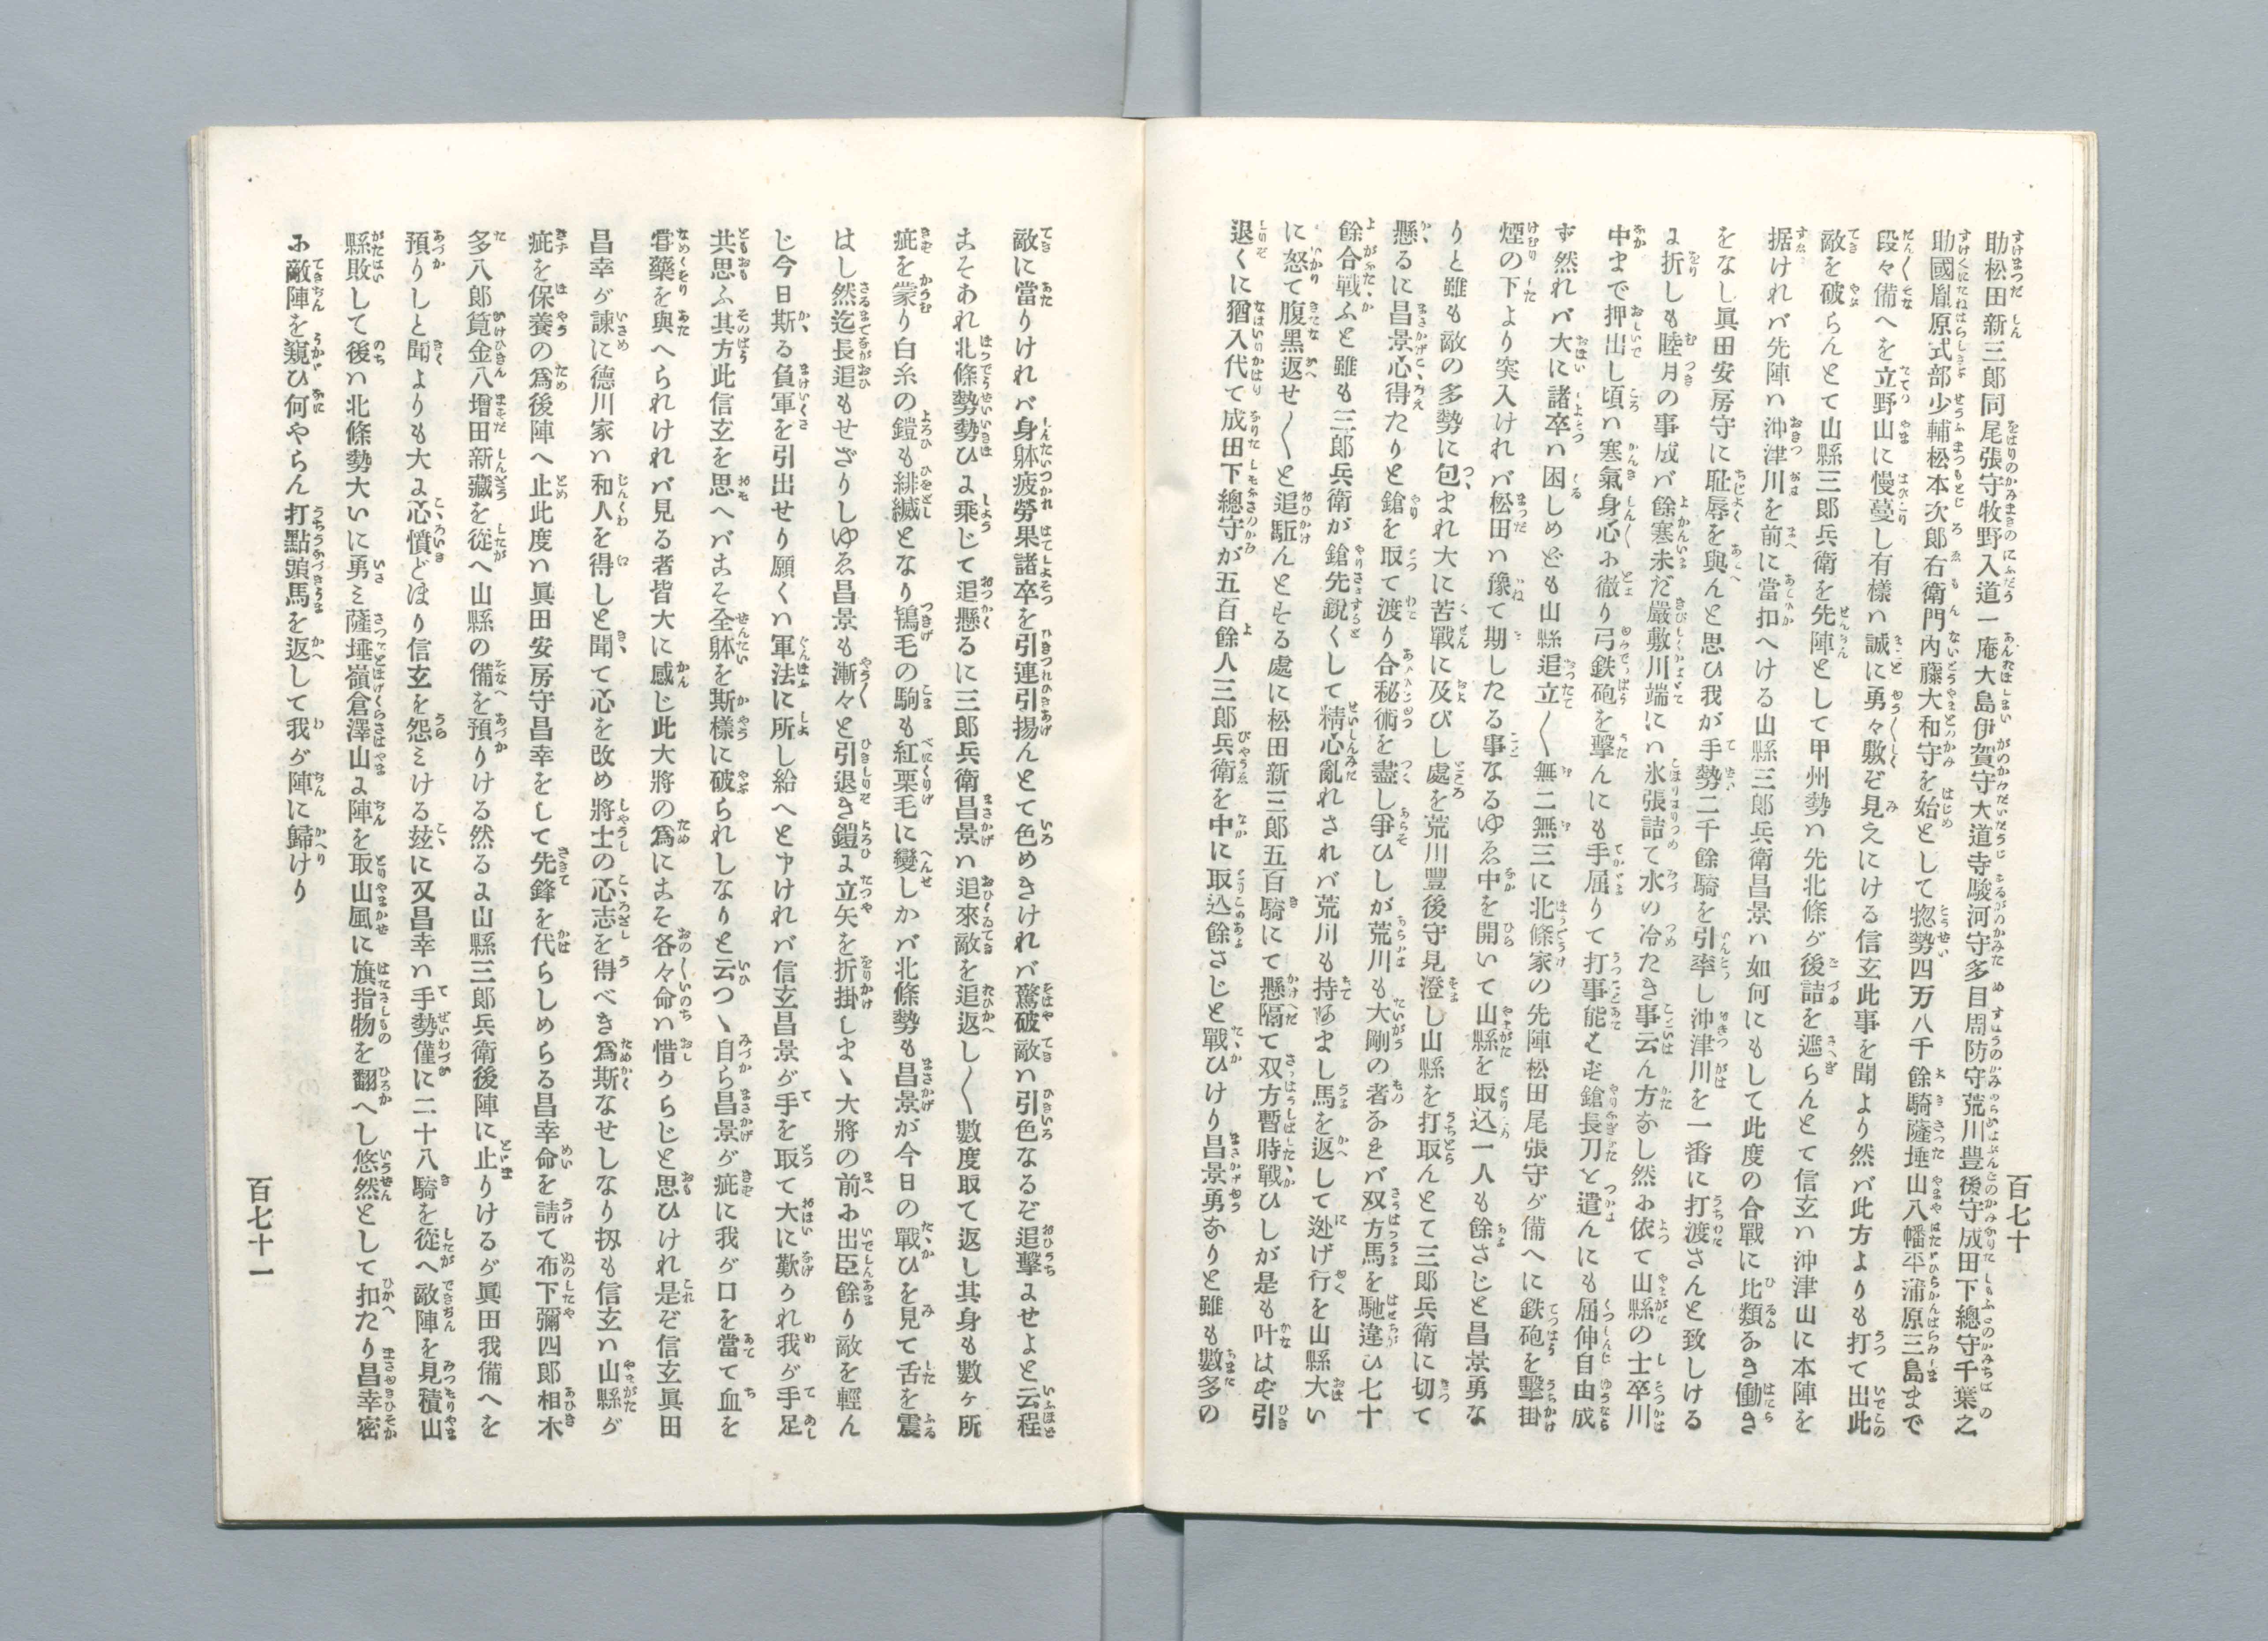 百七十
助松田新三郎同尾張守牧野入道一庵大島伊賀守大道寺駿河守多目周防守荒川豊後守成田下總守千葉之
助國胤原式部少輔松本次郎右衛門內藤大和守を始として惣勢四万八千餘騎薩埵山八幡平蒲原三島まで
段々備へを立野山に慢蔓し有樣ハ誠に勇々敷ぞ見えにける信玄此事を聞より然バ此方よりも打て出此
敵を破らんとて山縣三郎兵衛を先陣として甲州勢ハ先北條が後詰を遮らんとて信玄ハ沖津山に本陣を
据けれバ先陣ハ沖津川を前に當扣へける山縣三郎兵衛昌景ハ如何にもして此度の合戰に比類なき働き
をなし眞田安房守に耻辱を與んと思ひ我が手勢二千餘騎を引率し沖津川を一番に打渡さんと致しける
に折しも睦月の事成バ餘寒未だ嚴敷川端にハ氷張詰て水の冷たき事云ん方なし然に依て山縣の士卒川
中まで押出し頃ハ寒氣身心に徹り弓鉄砲を擊んにも手屈りて打事能はず鎗長刀を遣んにも屈伸自由成
ず然れバ大に諸卒ハ困しめども山縣追立〱無二無三に北條家の先陣松田尾張守が備へに鉄砲を擊掛
煙の下より突入けれバ松田ハ豫て期したる事なるゆゑ中を開いて山縣を取込一人も餘さじと昌景勇な
りと雖も敵の多勢に包まれ大に苦戰に及びし處を荒川豐後守見澄し山縣を打取んとて三郎兵衛に切て
懸るに昌景心得たりと鎗を取て渡り合秘術を盡し爭ひしが荒川も大剛の者なれバ双方馬を馳違ひ七十
餘合戰ふと雖も三郎兵衛が鎗先銳くして精心亂れされバ荒川も持あまし馬を返して迯げ行を山縣大い
に怒て腹黑返せ〱と追駈んとする處に松田新三郎五百騎にて懸隔て双方暫時戰ひしが是も叶はず引
退くに猶入代て成田下總守が五百餘人三郎兵衛を中に取込餘さじと戰ひけり昌景勇なりと雖も數多の
敵に當りけれバ身躰疲勞果諸卒を引連引揚んとて色めきけれバ驚破敵ハ引色なるぞ追擊にせよと云程
こそあれ北條勢勢ひに乘じて追懸るに三郎兵衛昌景ハ追來敵を追返し〱數度取て返し其身も數ヶ所
疵を蒙り白糸の鎧も緋縅となり鴾毛の駒も紅栗毛に變しかバ北條勢も昌景が今日の戰ひを見て舌を震
はし然迄長追もせざりしゆゑ昌景も漸々と引退き鎧に立矢を折掛しまゝ大將の前に出臣餘り敵を輕ん
じ今日斯る負軍を引出せり願くハ軍法に所し給へと申けれバ信玄昌景が手を取て大に歎かれ我が手足
共思ふ其方此信玄を思へバこそ全躰を斯樣に破られしなりと云つゝ自ら昌景が疵に我が口を當て血を
甞藥を與へられけれバ見る者皆大に感じ此大將の爲にこそ各々命ハ惜からじと思ひけれ是ぞ信玄眞田
昌幸が諫に德川家ハ和人を得しと聞て心を改め將士の心志を得べき爲斯なせしなり扨も信玄ハ山縣が
疵を保養の爲後陣へ止此度ハ眞田安房守昌幸をして先鋒を代らしめらる昌幸命を請て布下彌四郎相木
多八郎筧金八增田新藏を從へ山縣の備を預りける然るに山縣三郎兵衛後陣に止りけるが眞田我備へを
預りしと聞よりも大に心憤どほり信玄を怨ミける玆に又昌幸ハ手勢僅に二十八騎を從へ敵陣を見積山
縣敗して後ハ北條勢大いに勇ミ薩埵嶺倉澤山に陣を取山風に旗指物を翻へし悠然として扣たり昌幸密
に敵陣を窺ひ何やらん打點頭馬を返して我が陣に歸けり
百七十一